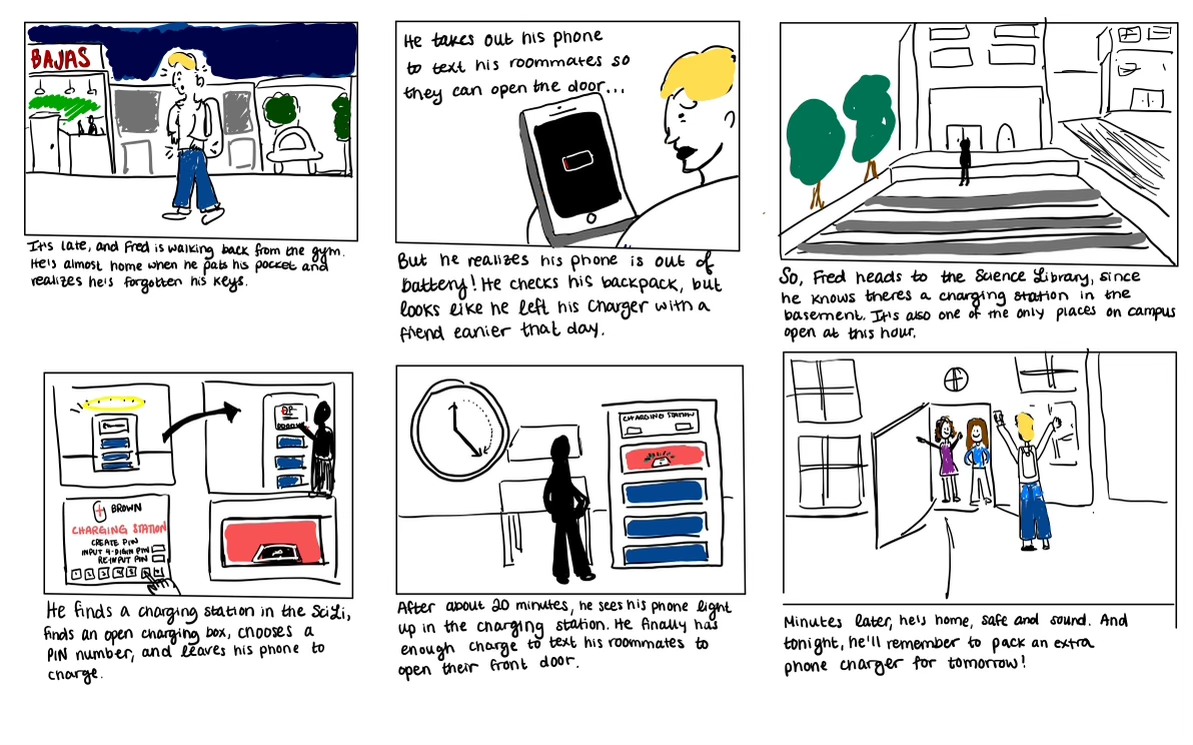 BAJAS
It's late, and Fred is walking back from the gym.
He's almost home when he pats his pocket and
realizes he's forgotten his keys.
He takes out his phone
to text his roommates so
they can open the door...
But he realizes his phone is out of
battery! He checks his backpack, but
looks like he left his charger with a
fiend eanier that day.
So, Fred heads to the Science Library, since
he knows theres a charging station in the
basement. It's also one of the only places on campus
open at this hour.
BROWN
CHARGING STATION
CREATE PIN
INPUT 4-DIGIN PIN
RE-INPUT PIN
1 2 3 4 5
He finds a charging station in the SciLi,
finds an open charging box, chooses a
PIN number, and leaves his phone to
charge.
CHARGING STATION
After about 20 minutes, he sees his phone light
up in the charging station. He finally has
enough charge to text his roommates to
open their front door.
Minutes later, he's home, safe and sound. And
tonight, he'll remember to pack an extra
phone charger for tomorrow!